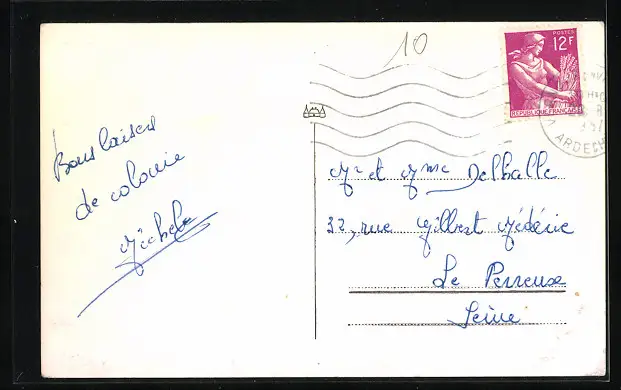 10
POSTES
12F
REPUBLIQUE FRANÇAISE
ARDECH
Bons baisers
de colonie
Michele
Mr et Mme Delballe
32, rue Gilbert Médéric
Le Perreux
Seine